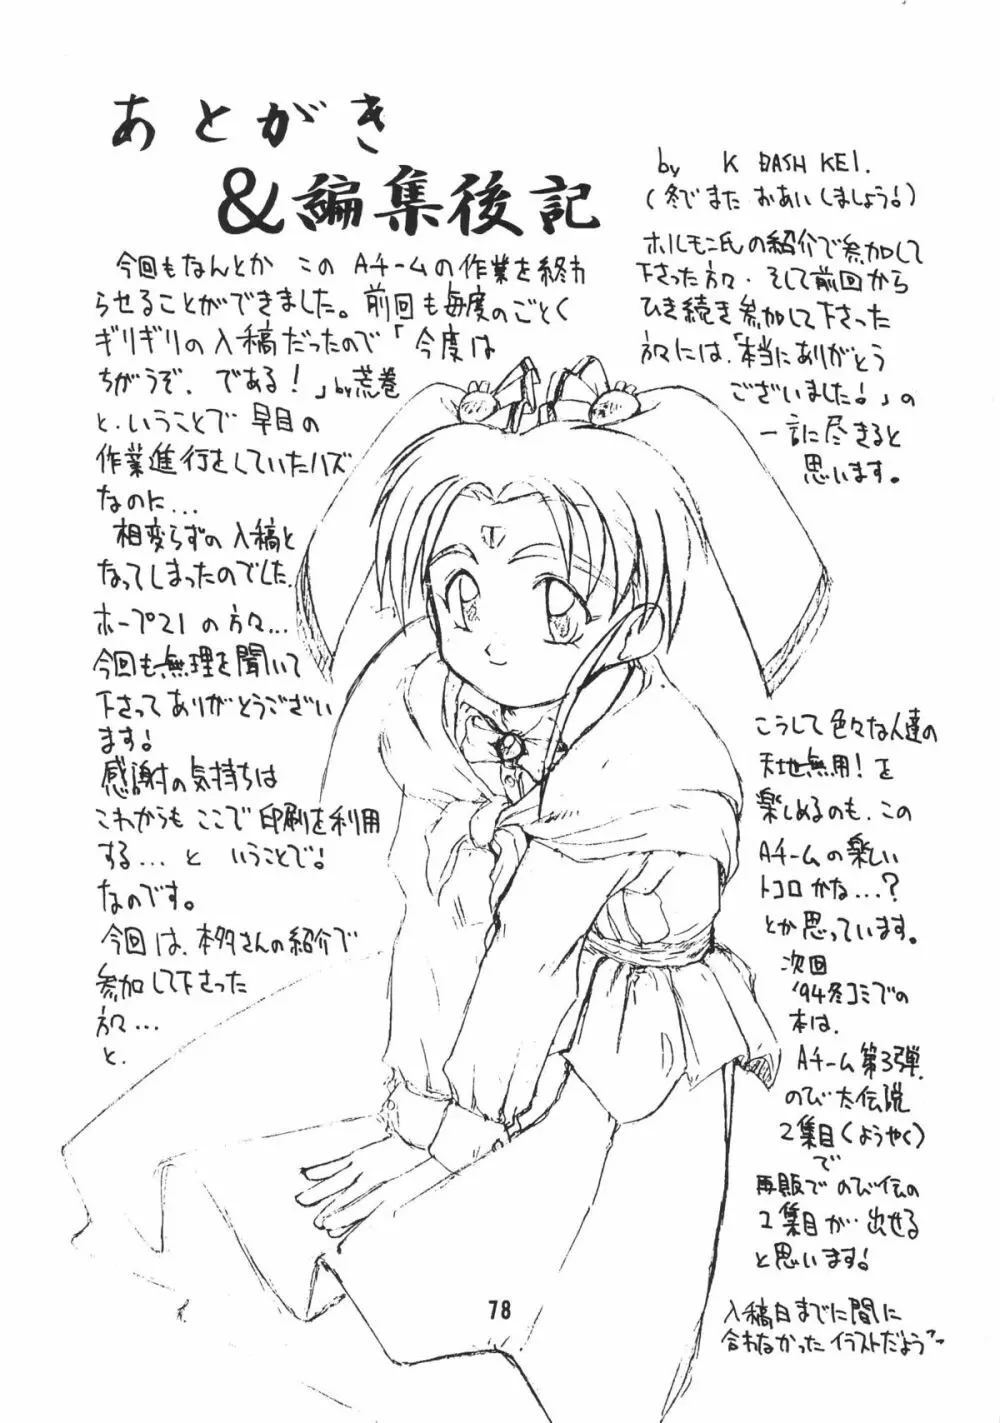 あとがき
&編集後記
by K DASH KEI.
(冬でまた おあいしましょう!)
今回もなんとか この Aチームの作業を終わ
らせることができました。前回も毎度のごとく
ギリギリの入稿だったので「今度は
ちがうぞ、である!」by荒巻
と、いうことで 早目の
作業進行をしていたハズ
なのに...
相変らずの入稿と
なってしまったのでした。
ホープ21の方々...
今回も無理を聞いて
下さってありがとうござい
ます!
感謝の気持ちは
これからも ここで印刷を利用
する...と いうことで!
なのです。
今回は、本多さんの紹介で
参加して下さった
方々...
と、
ホルモン氏の紹介で参加して
下さった方々、そして前回から
ひき続き参加して下さった
方々には、「本当にありがとう
ございました!」の
一言に尽きると
思います。
こうして色々な人達の
天地無用!を
楽しめるのも、この
Aチームの楽しい
トコロかな...?
とか思っています。
次回
'94冬コミでの
本は、
Aチーム第3弾、
のび太伝説
2集目(ようやく)
で
再販でのび伝の
2集目が..出せる
と思います!
入稿日までに間に
合わなかったイラストだよう~
78